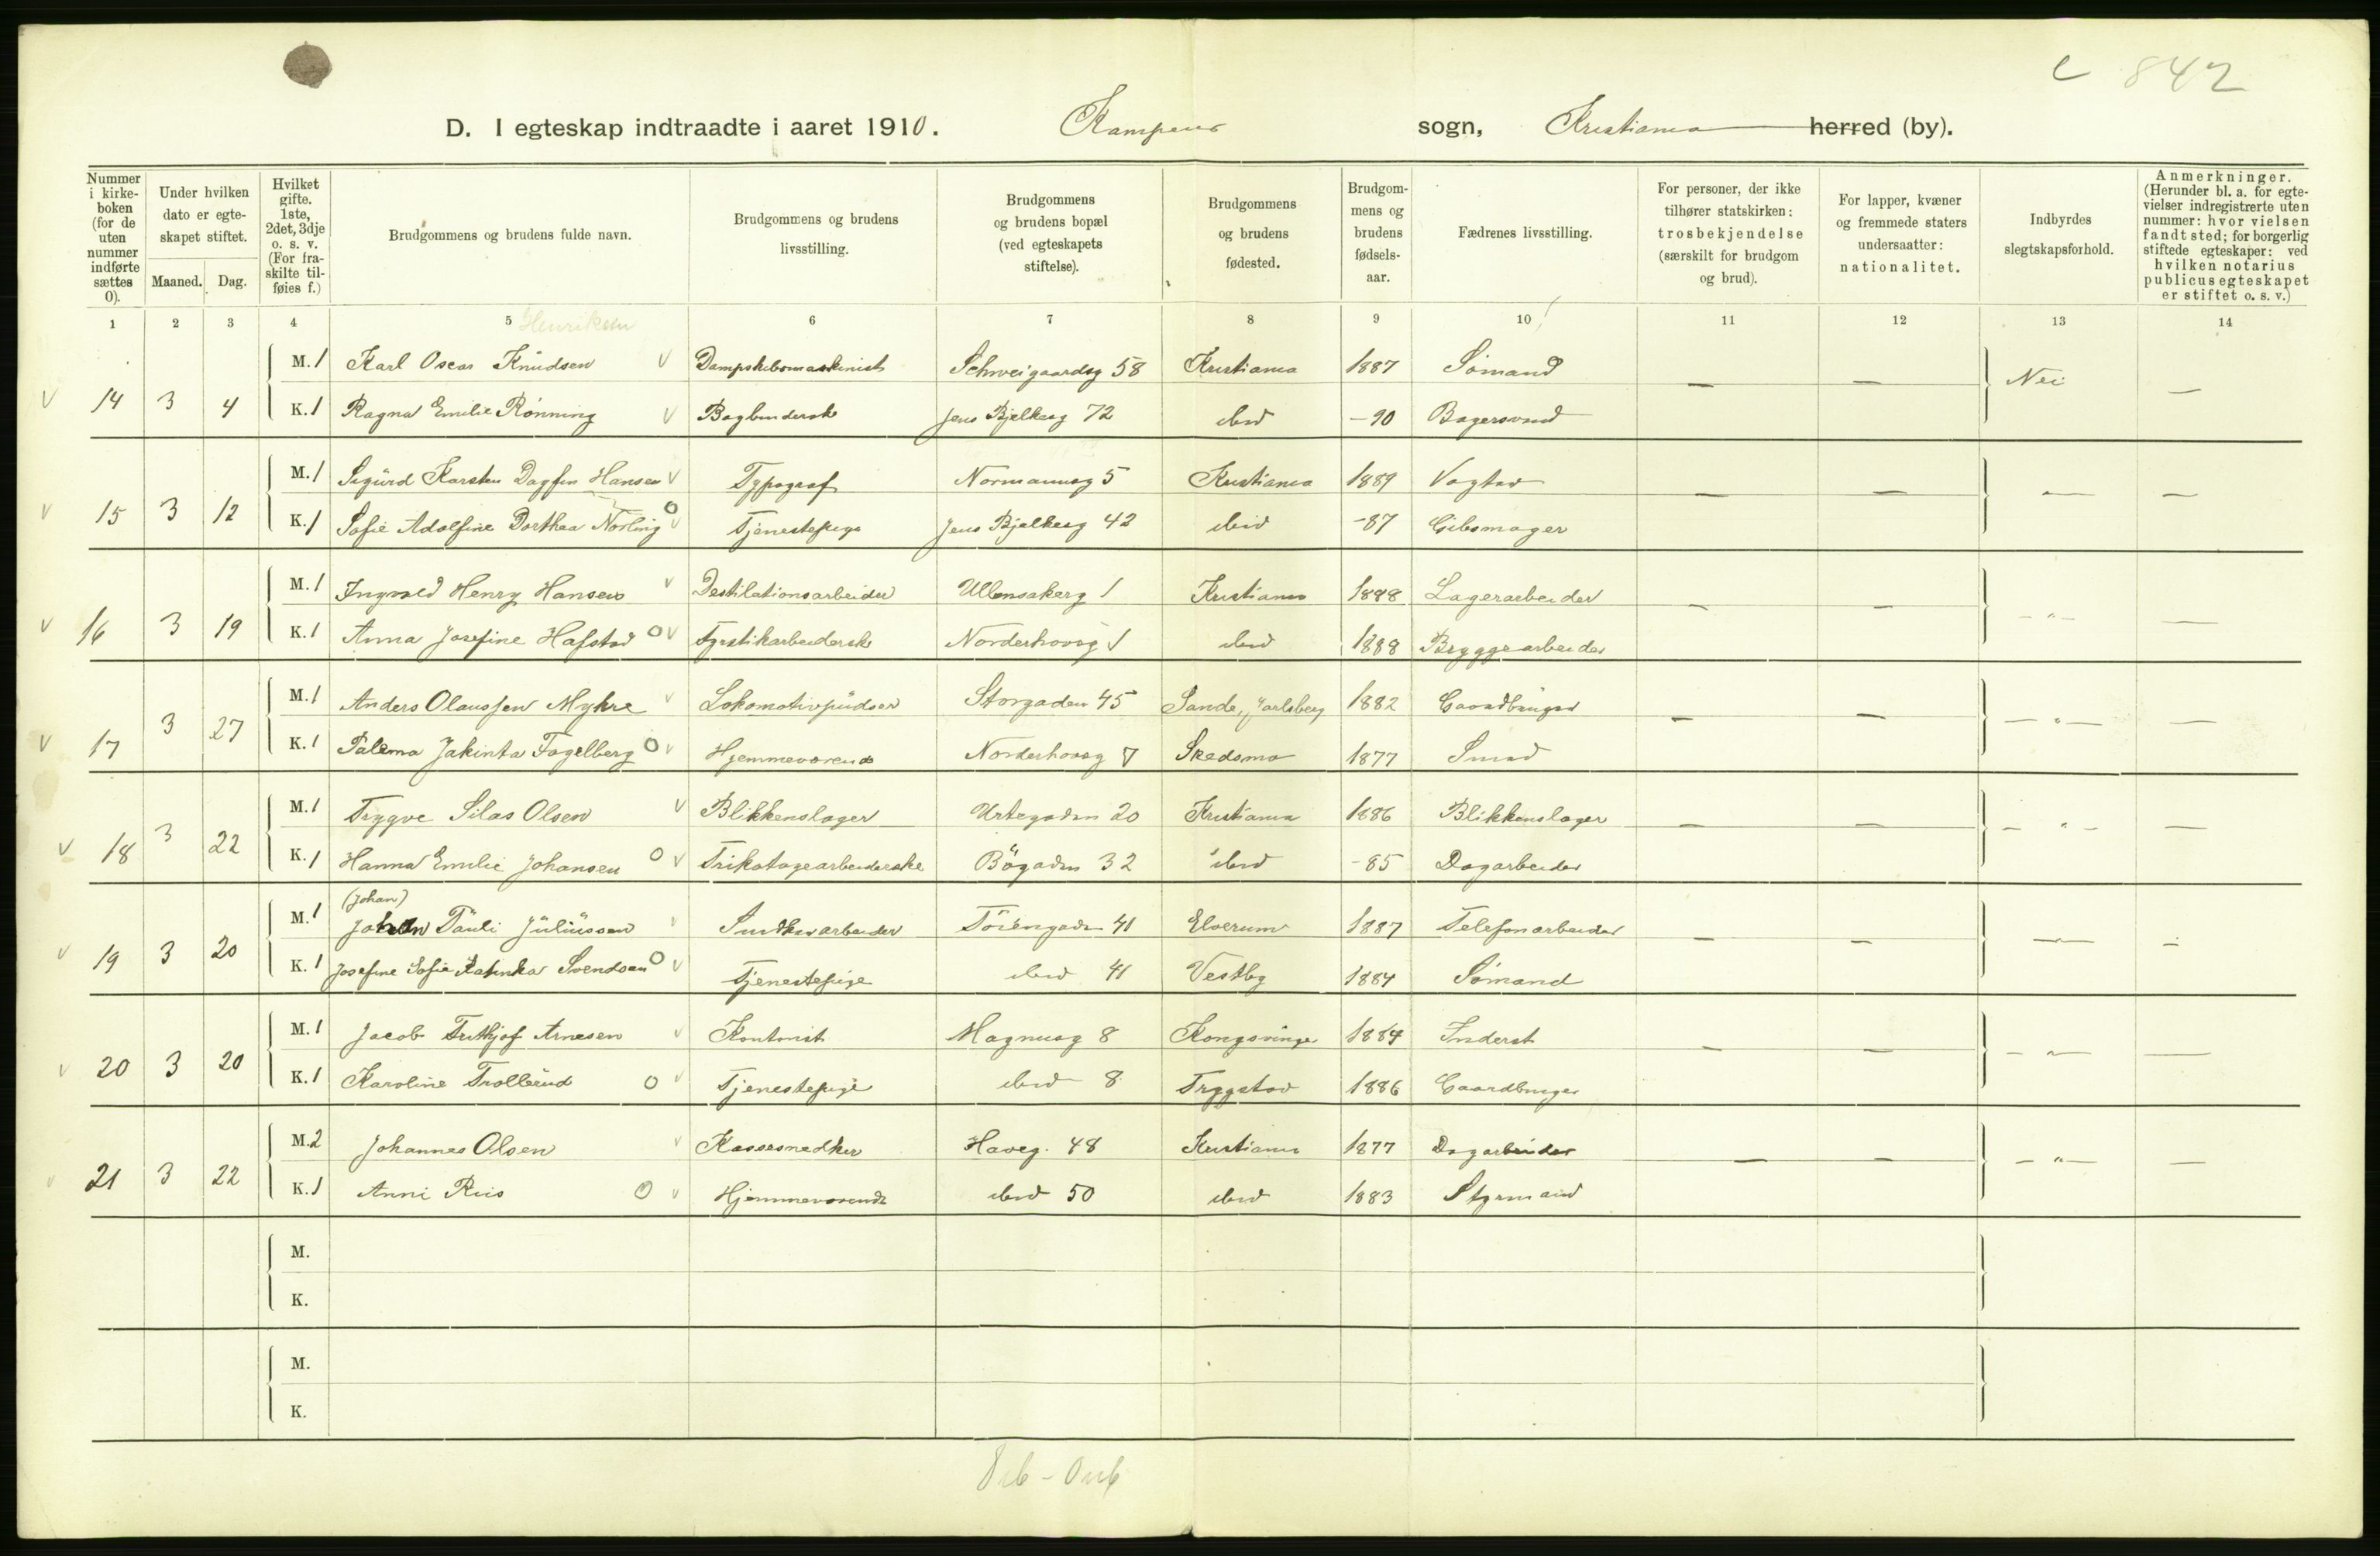 c 842
D. I egteskap indtraadte i aaret 1910. Kampens sogn, Kristiania herred (by).
Nummer i kirkeboken (for de uten nummer indførte sættes 0).
Under hvilken dato er egteskapet stiftet.
Maaned. Dag.
Hvilket gifte. 1ste, 2det, 3dje o. s. v. (For fraskilte tilføies f.)
Brudgommens og brudens fulde navn.
Brudgommens og brudens livsstilling.
Brudgommens og brudens bopæl (ved egteskapets stiftelse).
Brudgommens og brudens fødested.
Brudgommens og brudens fødselsaar.
Fædrenes livsstilling.
For personer, der ikke tilhører statskirken: trosbekjendelse (særskilt for brudgom og brud).
For lapper, kvæner og fremmede staters undersaatter: nationalitet.
Indbyrdes slegtskapsforhold.
Anmerkninger. (Herunder bl. a. for egtevielser indregistrerte uten nummer: hvor vielsen fandt sted; for borgerlig stiftede egteskaper: ved hvilken notarius publicus egteskapet er stiftet o. s. v.)
1 2 3 4 5 6 7 8 9 10 11 12 13 14
Henriksen
M. 1 Karl Oscar Knudsen V Dampskibsmaskinist Schweigaardsg 58 Kristiania 1887 Sömand — — Nei —
V 14 3 4 K. 1 Ragna Emilie Rönning V Bogbinderske Jens Bjelkesg 72 ibid -90 Bagersvend
M. 1 Sigurd Karsten Dagfin Hansen V Typograf Normannsg 5 Kristiania 1889 Vogter — — —"— —
V 15 3 12 K. 1 Sofie Adolfine Dorthea Norling O V Tjenestepige Jens Bjelkesg 42 ibid -87 Gibsmager
M. 1 Ingvald Henry Hansen V Destilationsarbeider Ullensakerg 1 Kristiania 1888 Lagerarbeider — — —"— —
V 16 3 19 K. 1 Anna Josefine Hafstad O V Fyrstikarbeiderske Norderhovsg 1 ibid 1888 Bryggearbeider
M. 1 Anders Olaussen Myhre V Lokomotivpudser Storgaden 45 Sande, Jarlsberg 1882 Gaardbruger — — —"— —
V 17 3 27 K. 1 Palema Jakinta Fagelberg O V Hjemmeværende Norderhovsg 7 Skedsmo 1877 Smed
M. 1 Trygve Silas Olsen V Blikkenslager Urtegaden 20 Kristiania 1886 Blikkenslager — — —"— —
V 18 3 22 K. 1 Hanna Emilie Johansen O V Trikotagearbeiderske Bögaden 32 ibid -85 Dagarbeider
(Johan)
M. 1 Johan Pauli Juliussen V Snedkerarbeider Töiengaden 41 Elverum 1887 Telefonarbeider — — —"— —
V 19 3 20 K. 1 Josefine Sofie Katinka Svendsen O V Tjenestepige ibid 41 Vestby 1884 Sömand
M. 1 Jacob Frithjof Arnesen V Kontorist Magnusg 8 Kongsvinger 1884 Inderst — — —"— —
V 20 3 20 K. 1 Karoline Trollerud O V Tjenestepige ibid 8 Trygstad 1886 Gaardbruger
M. 2 Johannes Olsen V Kassesnedker Haveg. 48 Kristiania 1877 Dagarbeider — — —"— —
V 21 3 22 K. 1 Anni Riis O V Hjemmeværende ibid 50 ibid 1883 Styrmand
M.
K.
M.
K.